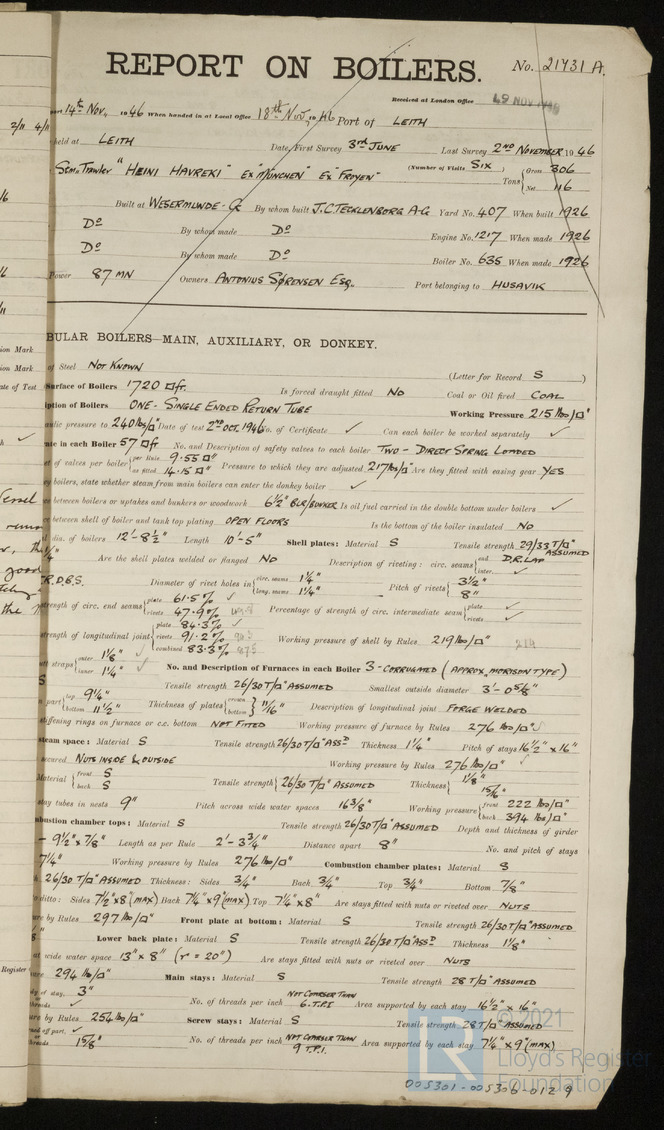 REPORT ON BOILERS.
No. 21731 A.
Received at London Office 19 NOV 1946
14th Nov, 1946 When handed in at Local Office 18th Nov, 1946 Port of LEITH
2/11 4/11
held at LEITH Date, First Survey 3rd JUNE Last Survey 2ND NOVEMBER 1946
Stm. Trawler "HEINI HAVREKI" Ex "MÜNCHEN" Ex "FROYEN" (Number of Visits SIX) Tons { Gross 306
Net 116
Built at WESERMUNDE-G By whom built J.C. TECKLENBORG A-G Yard No. 407 When built 1926
Do By whom made Do Engine No. 1217 When made 1926
Do By whom made Do Boiler No. 635 When made 1926
Power 87 MN Owners ANTONIUS SØRENSEN ESQ. Port belonging to HUSAVIK
BULAR BOILERS—MAIN, AUXILIARY, OR DONKEY.
of Steel NOT KNOWN (Letter for Record S )
Surface of Boilers 1720 □ft. Is forced draught fitted NO Coal or Oil fired COAL
iption of Boilers ONE - SINGLE ENDED RETURN TUBE Working Pressure 215 lbs/□"
ulic pressure to 240 lbs/□" Date of test 2ND OCT. 1946 No. of Certificate ✓ Can each boiler be worked separately ✓
ate in each Boiler 57 □ft No. and Description of safety valves to each boiler TWO - DIRECT SPRING LOADED
et of valves per boiler { per Rule 9.55 □"
as fitted 14.15 □" Pressure to which they are adjusted 217 lbs/□" Are they fitted with easing gear YES
ey boilers, state whether steam from main boilers can enter the donkey boiler ✓
ce between boilers or uptakes and bunkers or woodwork 6½" BLR/BUNKER Is oil fuel carried in the double bottom under boilers ✓
ce between shell of boiler and tank top plating OPEN FLOORS Is the bottom of the boiler insulated NO
l dia. of boilers 12'-8½" Length 10'-5" Shell plates: Material S Tensile strength 29/33 T/□" ASSUMED
Are the shell plates welded or flanged NO Description of riveting: circ. seams { end D.R. LAP
inter. ✓
T.R.D.B.S. Diameter of rivet holes in { circ. seams 1¼"
long. seams 1¼" Pitch of rivets { 3½"
8"
strength of circ. end seams { plate 61.5% ✓
rivets 47.9% Percentage of strength of circ. intermediate seam { plate ✓
rivets ✓
strength of longitudinal joint { plate 84.3% ✓
rivets 91.2%
combined 83.3% Working pressure of shell by Rules 219 lbs/□" 219
utt straps { outer 1⅛" ✓
inner 1¼" ✓ No. and Description of Furnaces in each Boiler 3-CORRUGATED (APPROX. MORISON TYPE)
S Tensile strength 26/30 T/□" ASSUMED Smallest outside diameter 3'-0⅝"
n part { top 9¼"
bottom 11½" Thickness of plates { crown
bottom } 11/16" Description of longitudinal joint FORGE WELDED
stiffening rings on furnace or c.c. bottom NOT FITTED Working pressure of furnace by Rules 276 lbs/□" ✓
steam space: Material S Tensile strength 26/30 T/□" ASSD Thickness 1¼" Pitch of stays 16½" x 16"
secured NUTS INSIDE & OUTSIDE Working pressure by Rules 276 lbs/□" ✓
Material { front S
back S Tensile strength { 26/30 T/□" ASSUMED Thickness { 1⅛"
15/16"
stay tubes in nests 9" Pitch across wide water spaces 16⅜" Working pressure { front 222 lbs/□"
back 394 lbs/□"
mbustion chamber tops: Material S Tensile strength 26/30 T/□" ASSUMED Depth and thickness of girder
- 9½" x ⅞" Length as per Rule 2'-3¾" Distance apart 8" No. and pitch of stays
7¼" Working pressure by Rules 276 lbs/□" Combustion chamber plates: Material S
h 26/30 T/□" ASSUMED Thickness: Sides ¾" Back ¾" Top ¾" Bottom ⅞"
ditto: Sides 7½" x 8" (MAX) Back 7¼" x 9" (MAX) Top 7¼" x 8" Are stays fitted with nuts or riveted over NUTS
ure by Rules 297 lbs/□" Front plate at bottom: Material S Tensile strength 26/30 T/□" ASSUMED
Lower back plate: Material S Tensile strength 26/30 T/□" ASSD Thickness 1⅛"
at wide water space 13" x 8" (r = 20") Are stays fitted with nuts or riveted over NUTS
294 lbs/□" Main stays: Material S Tensile strength 28 T/□" ASSUMED
3" No. of threads per inch NOT COARSER THAN 6. T.P.I Area supported by each stay 16½" x 16"
ure by Rules 254 lbs/□" Screw stays: Material S Tensile strength 28 T/□" ASSUMED
1⅝" No. of threads per inch NOT COARSER THAN 9 T.P.I. Area supported by each stay 7¼" x 9" (MAX)
LR
© 2021
Lloyd's Register
Foundation
005301-005306-0129